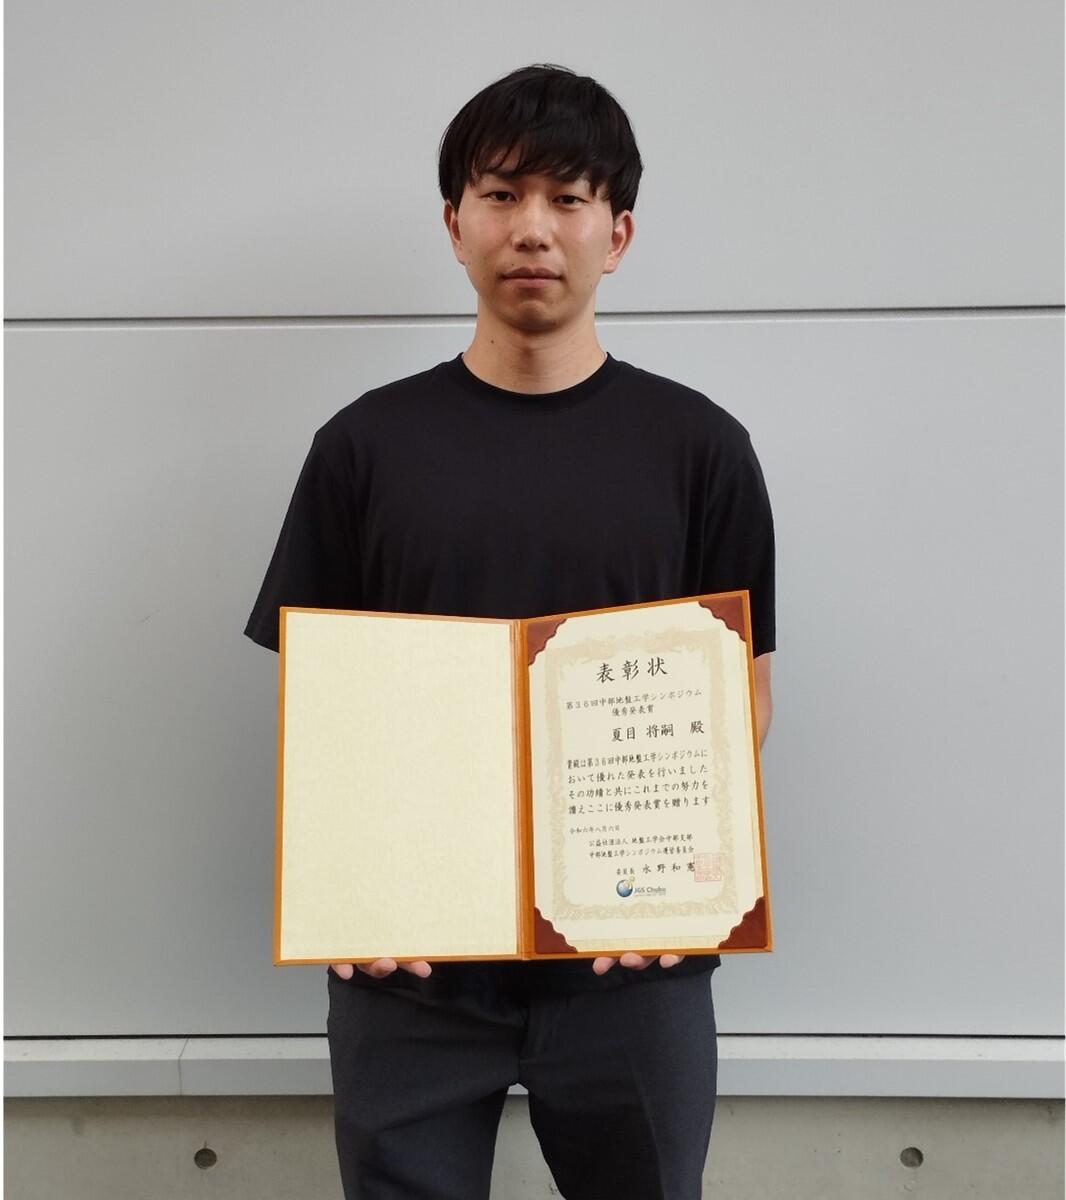 表彰状
第36回中部地盤工学シンポジウム
優秀発表賞
夏目 将嗣 殿
貴殿は第36回中部地盤工学シンポジウムに
おいて優れた発表を行いました
その功績と共にこれまでの努力を
讃えここに優秀発表賞を贈ります
令和六年八月六日
公益社団法人 地盤工学会中部支部
中部地盤工学シンポジウム運営委員会
委員長 水野和憲
JGS Chubu